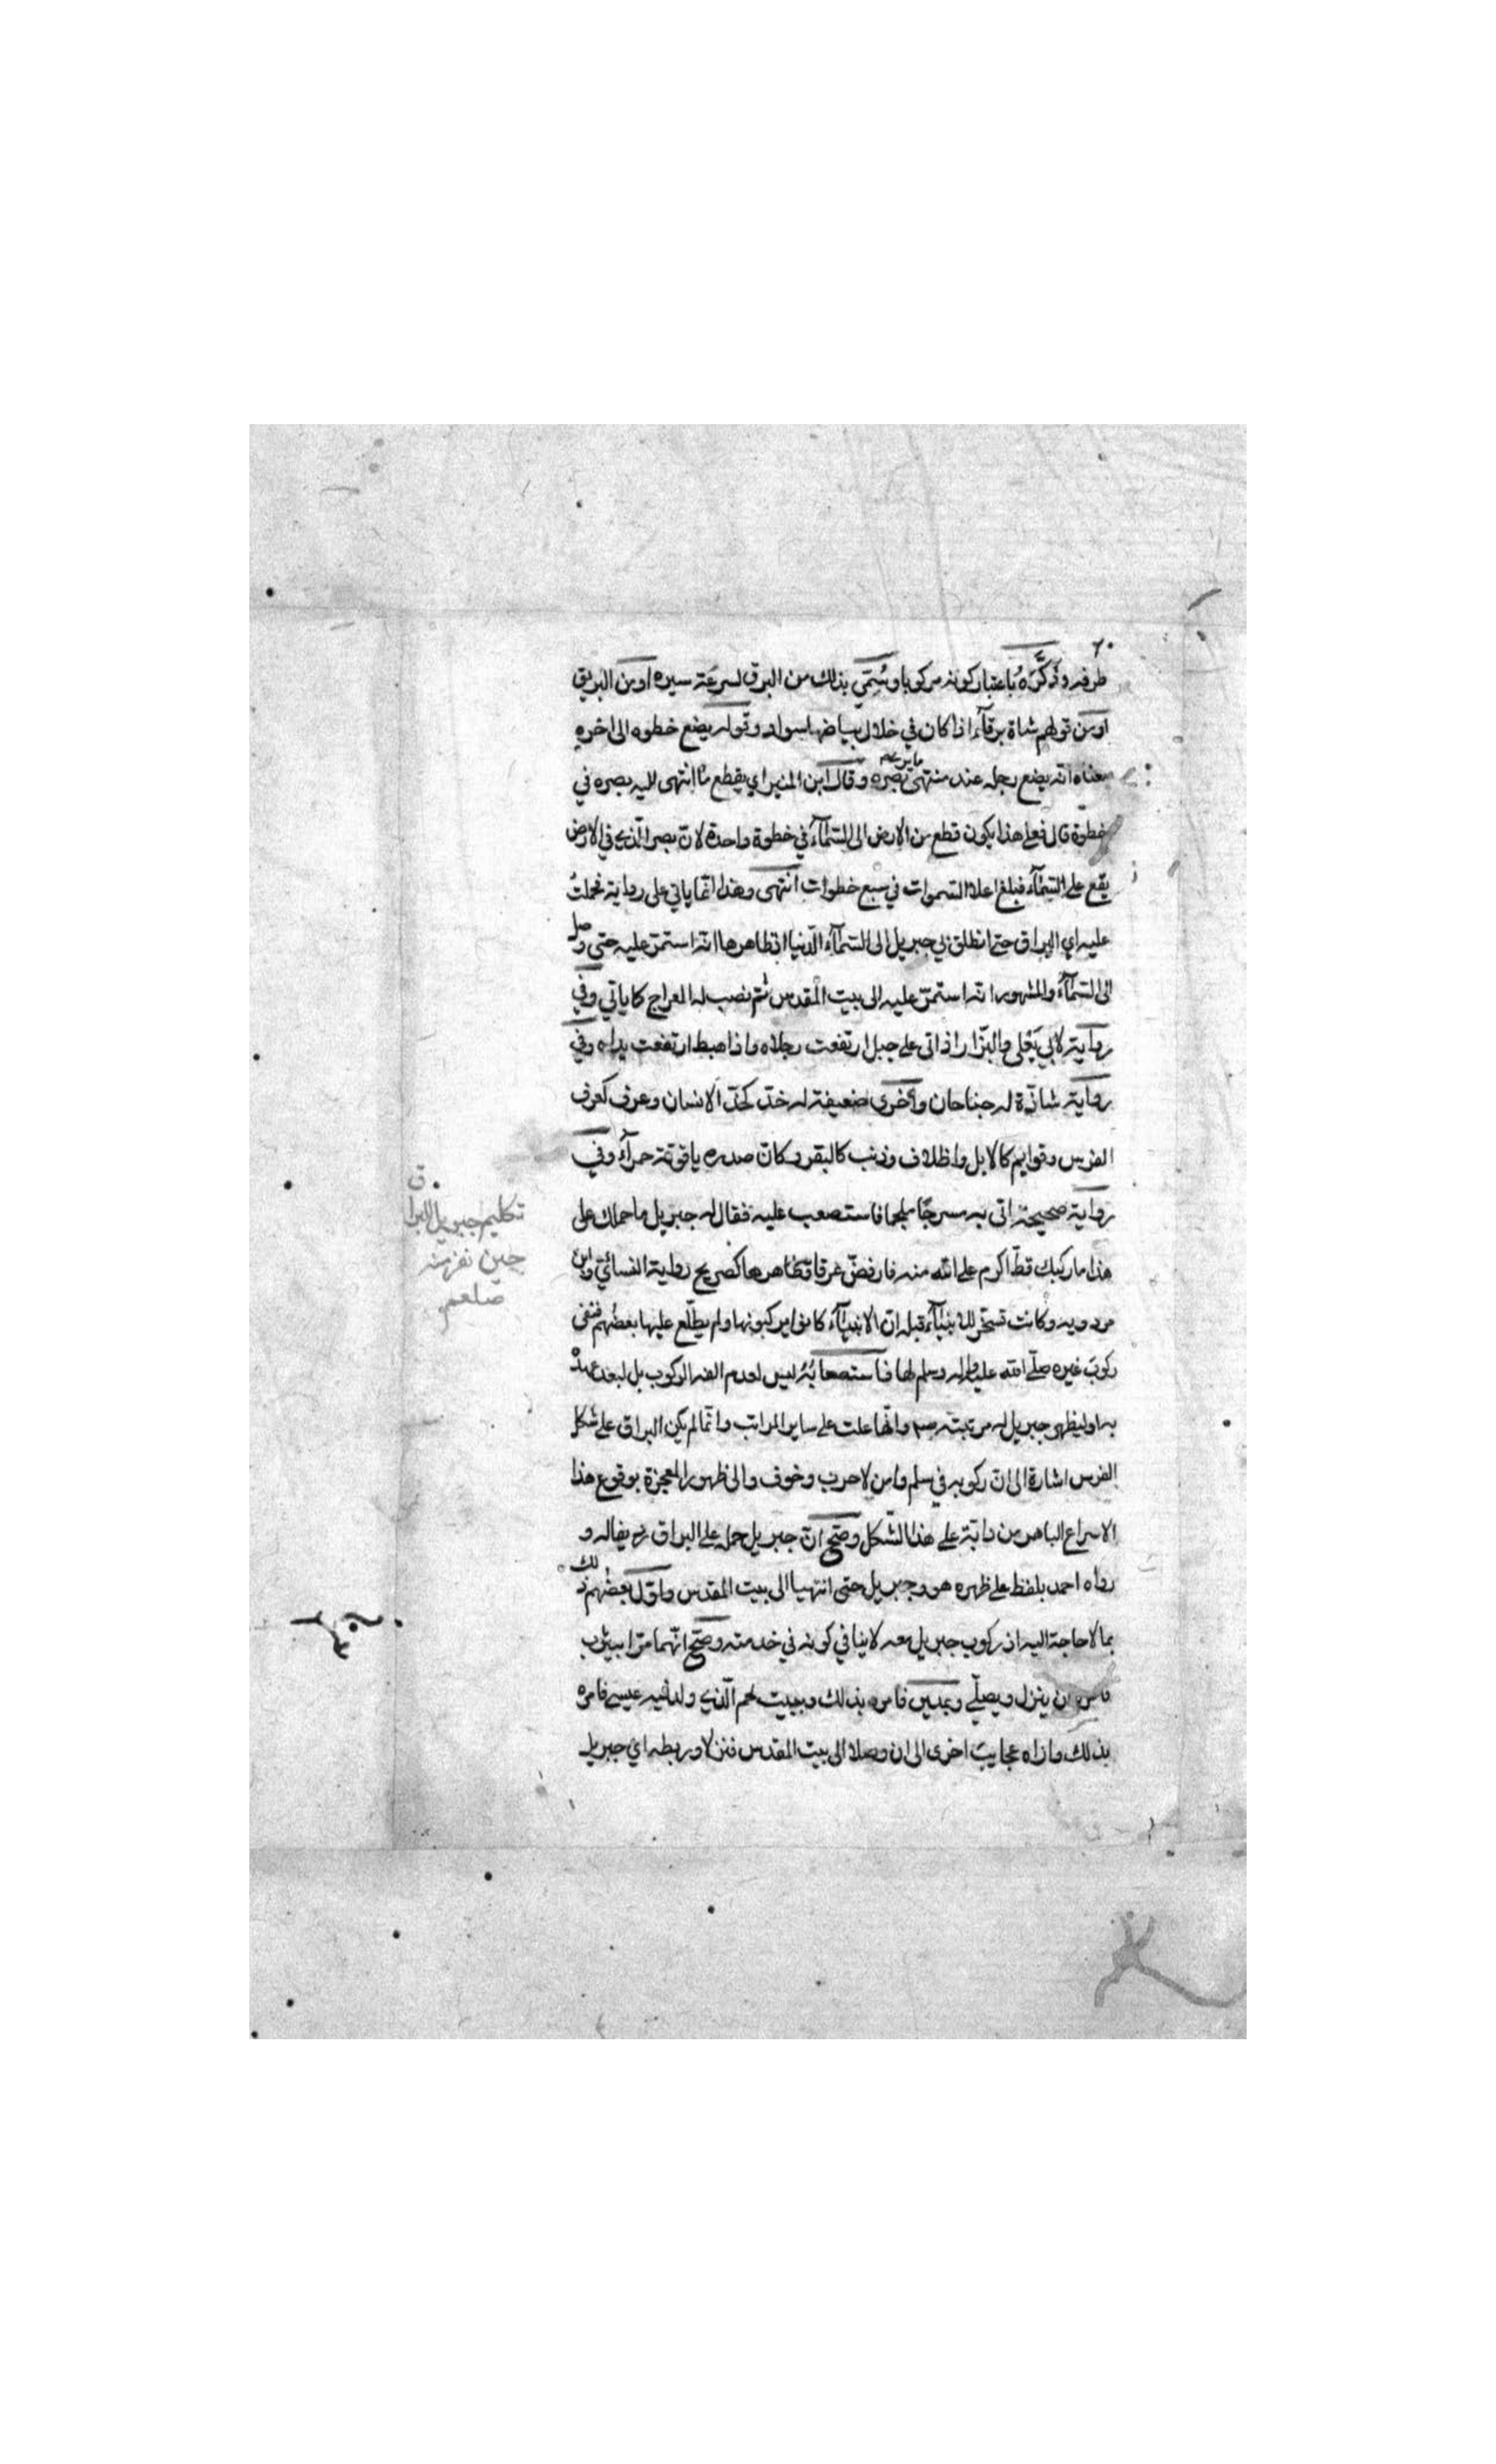 ٢٠
طرفه وذكّره باعتبار كونه مركوبا وسُمّي بذلك من البرق لسرعة سيره او من البريق
او من قولهم شاة برقآء اذا كان في خلال بياضها سواد وقوله يضع خطوه الى اخره
معناه انه يضع رجله عند منتهى بصره وقال ابن المنير اي يقطع ما انتهى اليه بصره في
خطوة قال فعلى هذا يكون قطع من الارض الى السمآء في خطوة واحدة لانّ بصر الّذي في الارض
يقع على السمآء فبلغ اعلا السموات في سبع خطوات انتهى وهذا انّما ياتي على رواية فحملتُ
عليه اي البراق حتى انطلق بي جبريل الى السمآء الدّنيا اذ ظاهرها انه استمرّ عليه حتى وصل
الى السمآء والمشهور انه استمرّ عليه الى بيت المقدس ثم نصب له المعراج كما ياتي وفي
رواية لابي يَعْلى والبزّار اذا اتى على جبل ارتفعت رجلاه واذا هبط ارتفعت يداه وفي
رواية شاذّة له جناحان وأخرى ضعيفة له خدّ كخدّ الانسان وعرف كعرف
الفرس وقوايم كالابل واظلاف وذنب كالبقر وكان صدره ياقوتة حمرآء وفي
رواية صحيحة اتي به مسرجًا ملجما فاستصعب عليه فقال له جبريل ما حملك على
هذا ما ركبك قطّ اكرم على الله منه فارفضّ عرقا وظاهرها كصريح رواية النسائيّ وابن
مردويه وكانت تسخّر للانبيآء قبله ان الانبيآء كانوا يركبونها ولم يطّلع عليها بعضُهم فنفى
ركوبَ غيره صلّى الله عليه واله وسلم لها فاستصعابُهُ ليس لعدم الفه الركوب بل لبعد عهده
به او ليظهر جبريل له مرتبته صم وانّها علت على ساير المراتب وانّما لم يكن البراق على شكل
الفرس اشارة الى انّ ركوبه في سلم وامن لا حرب وخوف والى ظهور المعجزة بوقوع هذا
الاسراع الباهر من دابّة على هذا الشّكل وصحّ انّ جبريل حمله على البراق رديفا له و
رواه احمد بلفظ على ظهره هو وجبريل حتى انتهيا الى بيت المقدس واوّل بعضُهم ذلك
بما لا حاجة اليه اذ ركوب جبريل معه لا ينافي كونه في خدمته وصحّ انّهما مرّا بيثرب
فامره ان ينزل ويصلّي وبمدين فامره بذلك وببيت لحم الّذي ولد فيه عيسى فامره
بذلك وراه عجايبَ اخرى الى ان وصلا الى بيت المقدس فنزلا وربطه اي جبريل
تكليم جبريل البراق
حين نفر منه
صلعم